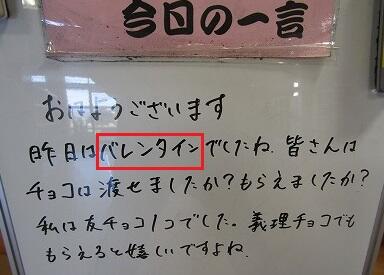 今日の一言
おはようございます
昨日はバレンタインでしたね。皆さんは
チョコは渡せましたか?もらえましたか?
私は友チョコ1つでした。義理チョコでも
もらえると嬉しいですよね。